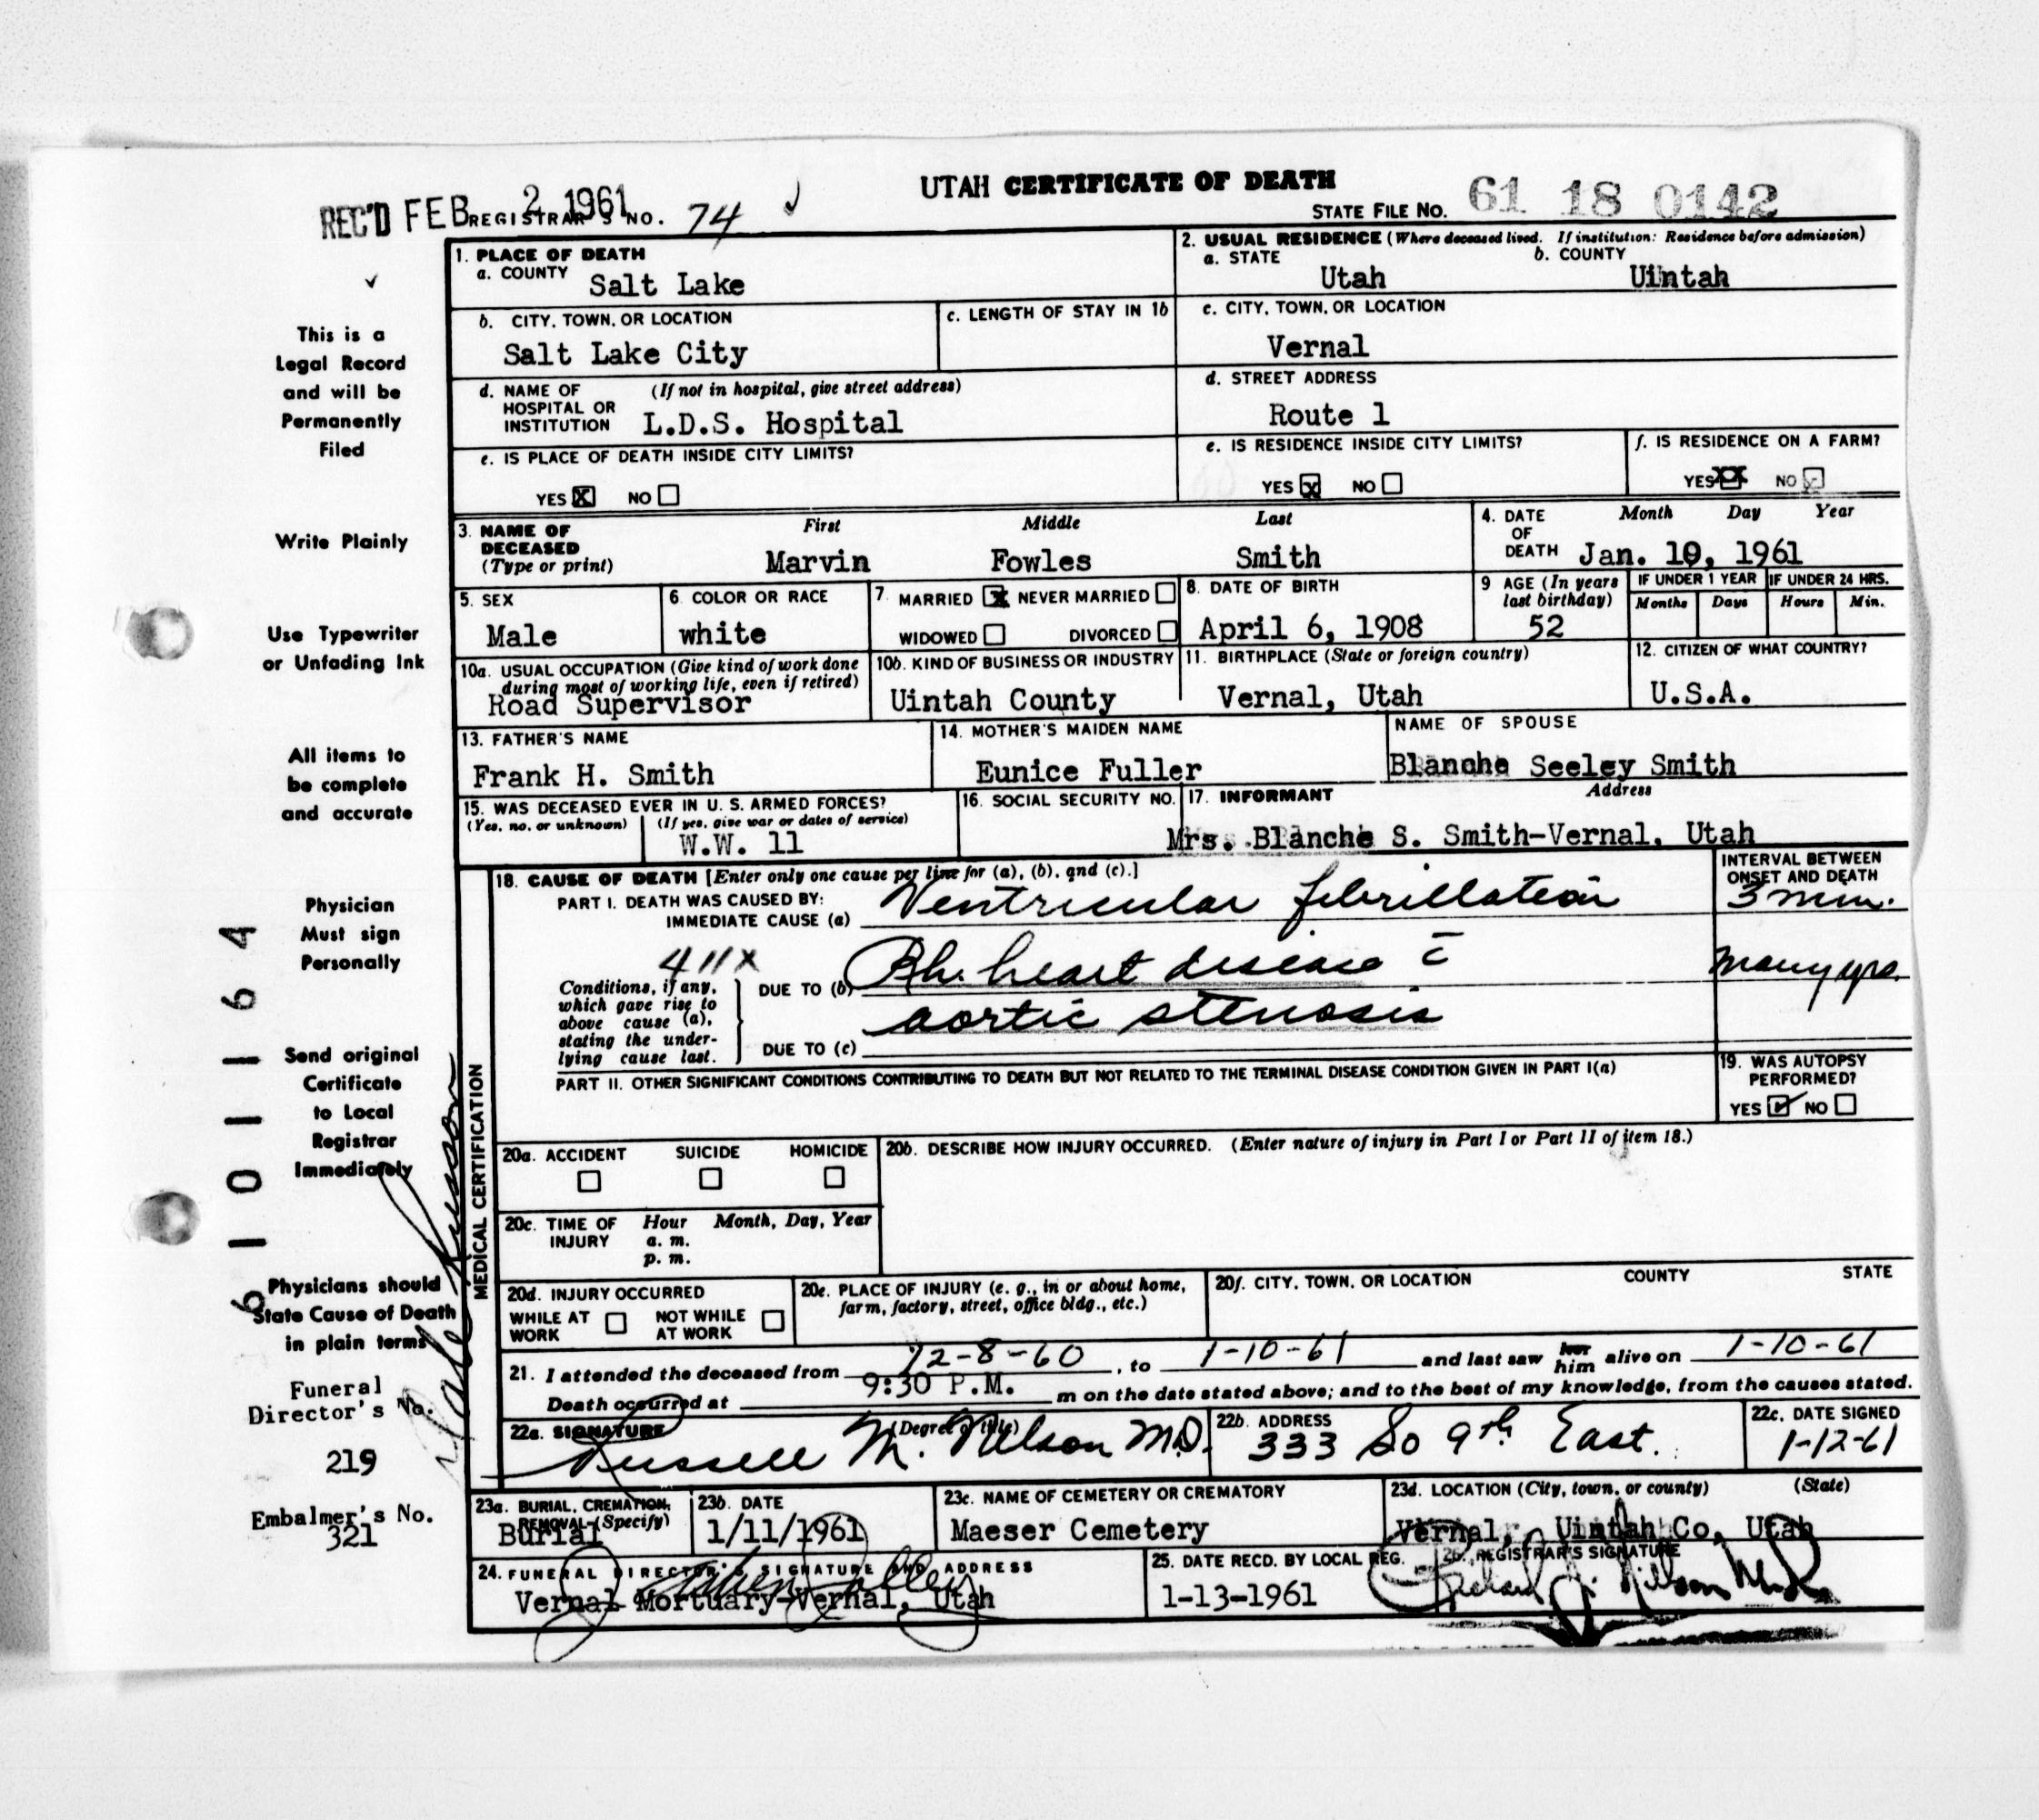 UTAH CERTIFICATE OF DEATH
REC'D FEB 2 1961 REGISTRAR'S NO. 74
STATE FILE NO. 61 18 0142
1. PLACE OF DEATH
a. COUNTY Salt Lake
2. USUAL RESIDENCE (Where deceased lived. If institution: Residence before admission)
a. STATE Utah b. COUNTY Uintah
b. CITY, TOWN, OR LOCATION Salt Lake City
c. LENGTH OF STAY IN 1b
c. CITY, TOWN, OR LOCATION Vernal
d. NAME OF HOSPITAL OR INSTITUTION (If not in hospital, give street address) L.D.S. Hospital
d. STREET ADDRESS Route 1
e. IS PLACE OF DEATH INSIDE CITY LIMITS?
YES X NO
e. IS RESIDENCE INSIDE CITY LIMITS?
YES X NO
f. IS RESIDENCE ON A FARM?
YES NO
3. NAME OF DECEASED (Type or print)
First Middle Last
Marvin Fowles Smith
4. DATE OF DEATH Month Day Year
Jan. 10, 1961
5. SEX Male
6. COLOR OR RACE white
7. MARRIED X NEVER MARRIED
WIDOWED DIVORCED
8. DATE OF BIRTH April 6, 1908
9 AGE (In years last birthday) 52
IF UNDER 1 YEAR Months Days
IF UNDER 24 HRS. Hours Min.
10a. USUAL OCCUPATION (Give kind of work done during most of working life, even if retired)
Road Supervisor
10b. KIND OF BUSINESS OR INDUSTRY
Uintah County
11. BIRTHPLACE (State or foreign country)
Vernal, Utah
12. CITIZEN OF WHAT COUNTRY?
U.S.A.
13. FATHER'S NAME
Frank H. Smith
14. MOTHER'S MAIDEN NAME
Eunice Fuller
NAME OF SPOUSE
Blanche Seeley Smith
15. WAS DECEASED EVER IN U. S. ARMED FORCES?
(Yes, no, or unknown) (If yes, give war or dates of service)
W.W. 11
16. SOCIAL SECURITY NO.
17. INFORMANT Address
Mrs. Blanche S. Smith-Vernal, Utah
MEDICAL CERTIFICATION
18. CAUSE OF DEATH [Enter only one cause per line for (a), (b), and (c).]
INTERVAL BETWEEN ONSET AND DEATH
PART I. DEATH WAS CAUSED BY:
IMMEDIATE CAUSE (a) Ventricular fibrillation 3 min.
411X
Conditions, if any, which gave rise to above cause (a), stating the underlying cause last.
DUE TO (b) Rh. heart disease c̄ many yrs.
aortic stenosis
DUE TO (c)
PART II. OTHER SIGNIFICANT CONDITIONS CONTRIBUTING TO DEATH BUT NOT RELATED TO THE TERMINAL DISEASE CONDITION GIVEN IN PART I(a)
19. WAS AUTOPSY PERFORMED?
YES ✓ NO
20a. ACCIDENT SUICIDE HOMICIDE
20b. DESCRIBE HOW INJURY OCCURRED. (Enter nature of injury in Part I or Part II of item 18.)
20c. TIME OF INJURY Hour Month, Day, Year
a. m.
p. m.
20d. INJURY OCCURRED
WHILE AT WORK NOT WHILE AT WORK
20e. PLACE OF INJURY (e. g., in or about home, farm, factory, street, office bldg., etc.)
20f. CITY, TOWN, OR LOCATION COUNTY STATE
21. I attended the deceased from 12-8-60, to 1-10-61 and last saw her him alive on 1-10-61
Death occurred at 9:30 P.M. m on the date stated above; and to the best of my knowledge, from the causes stated.
22a. SIGNATURE (Degree or title)
Russell M. Nelson M.D.
22b. ADDRESS
333 So 9th East.
22c. DATE SIGNED
1-12-61
23a. BURIAL, CREMATION, REMOVAL (Specify)
Burial
23b. DATE
1/11/1961
23c. NAME OF CEMETERY OR CREMATORY
Maeser Cemetery
23d. LOCATION (City, town, or county) (State)
Vernal, Uintah Co, Utah
24. FUNERAL DIRECTOR'S SIGNATURE AND ADDRESS
Vernal Mortuary-Vernal, Utah
25. DATE RECD. BY LOCAL REG.
1-13-1961
26. REGISTRAR'S SIGNATURE
This is a
Legal Record
and will be
Permanently
Filed
Write Plainly
Use Typewriter
or Unfading Ink
All items to
be complete
and accurate
Physician
Must sign
Personally
Send original
Certificate
to Local
Registrar
Immediately
Physicians should
State Cause of Death
in plain terms
Funeral
Director's No.
219
Embalmer's No.
321
6101164